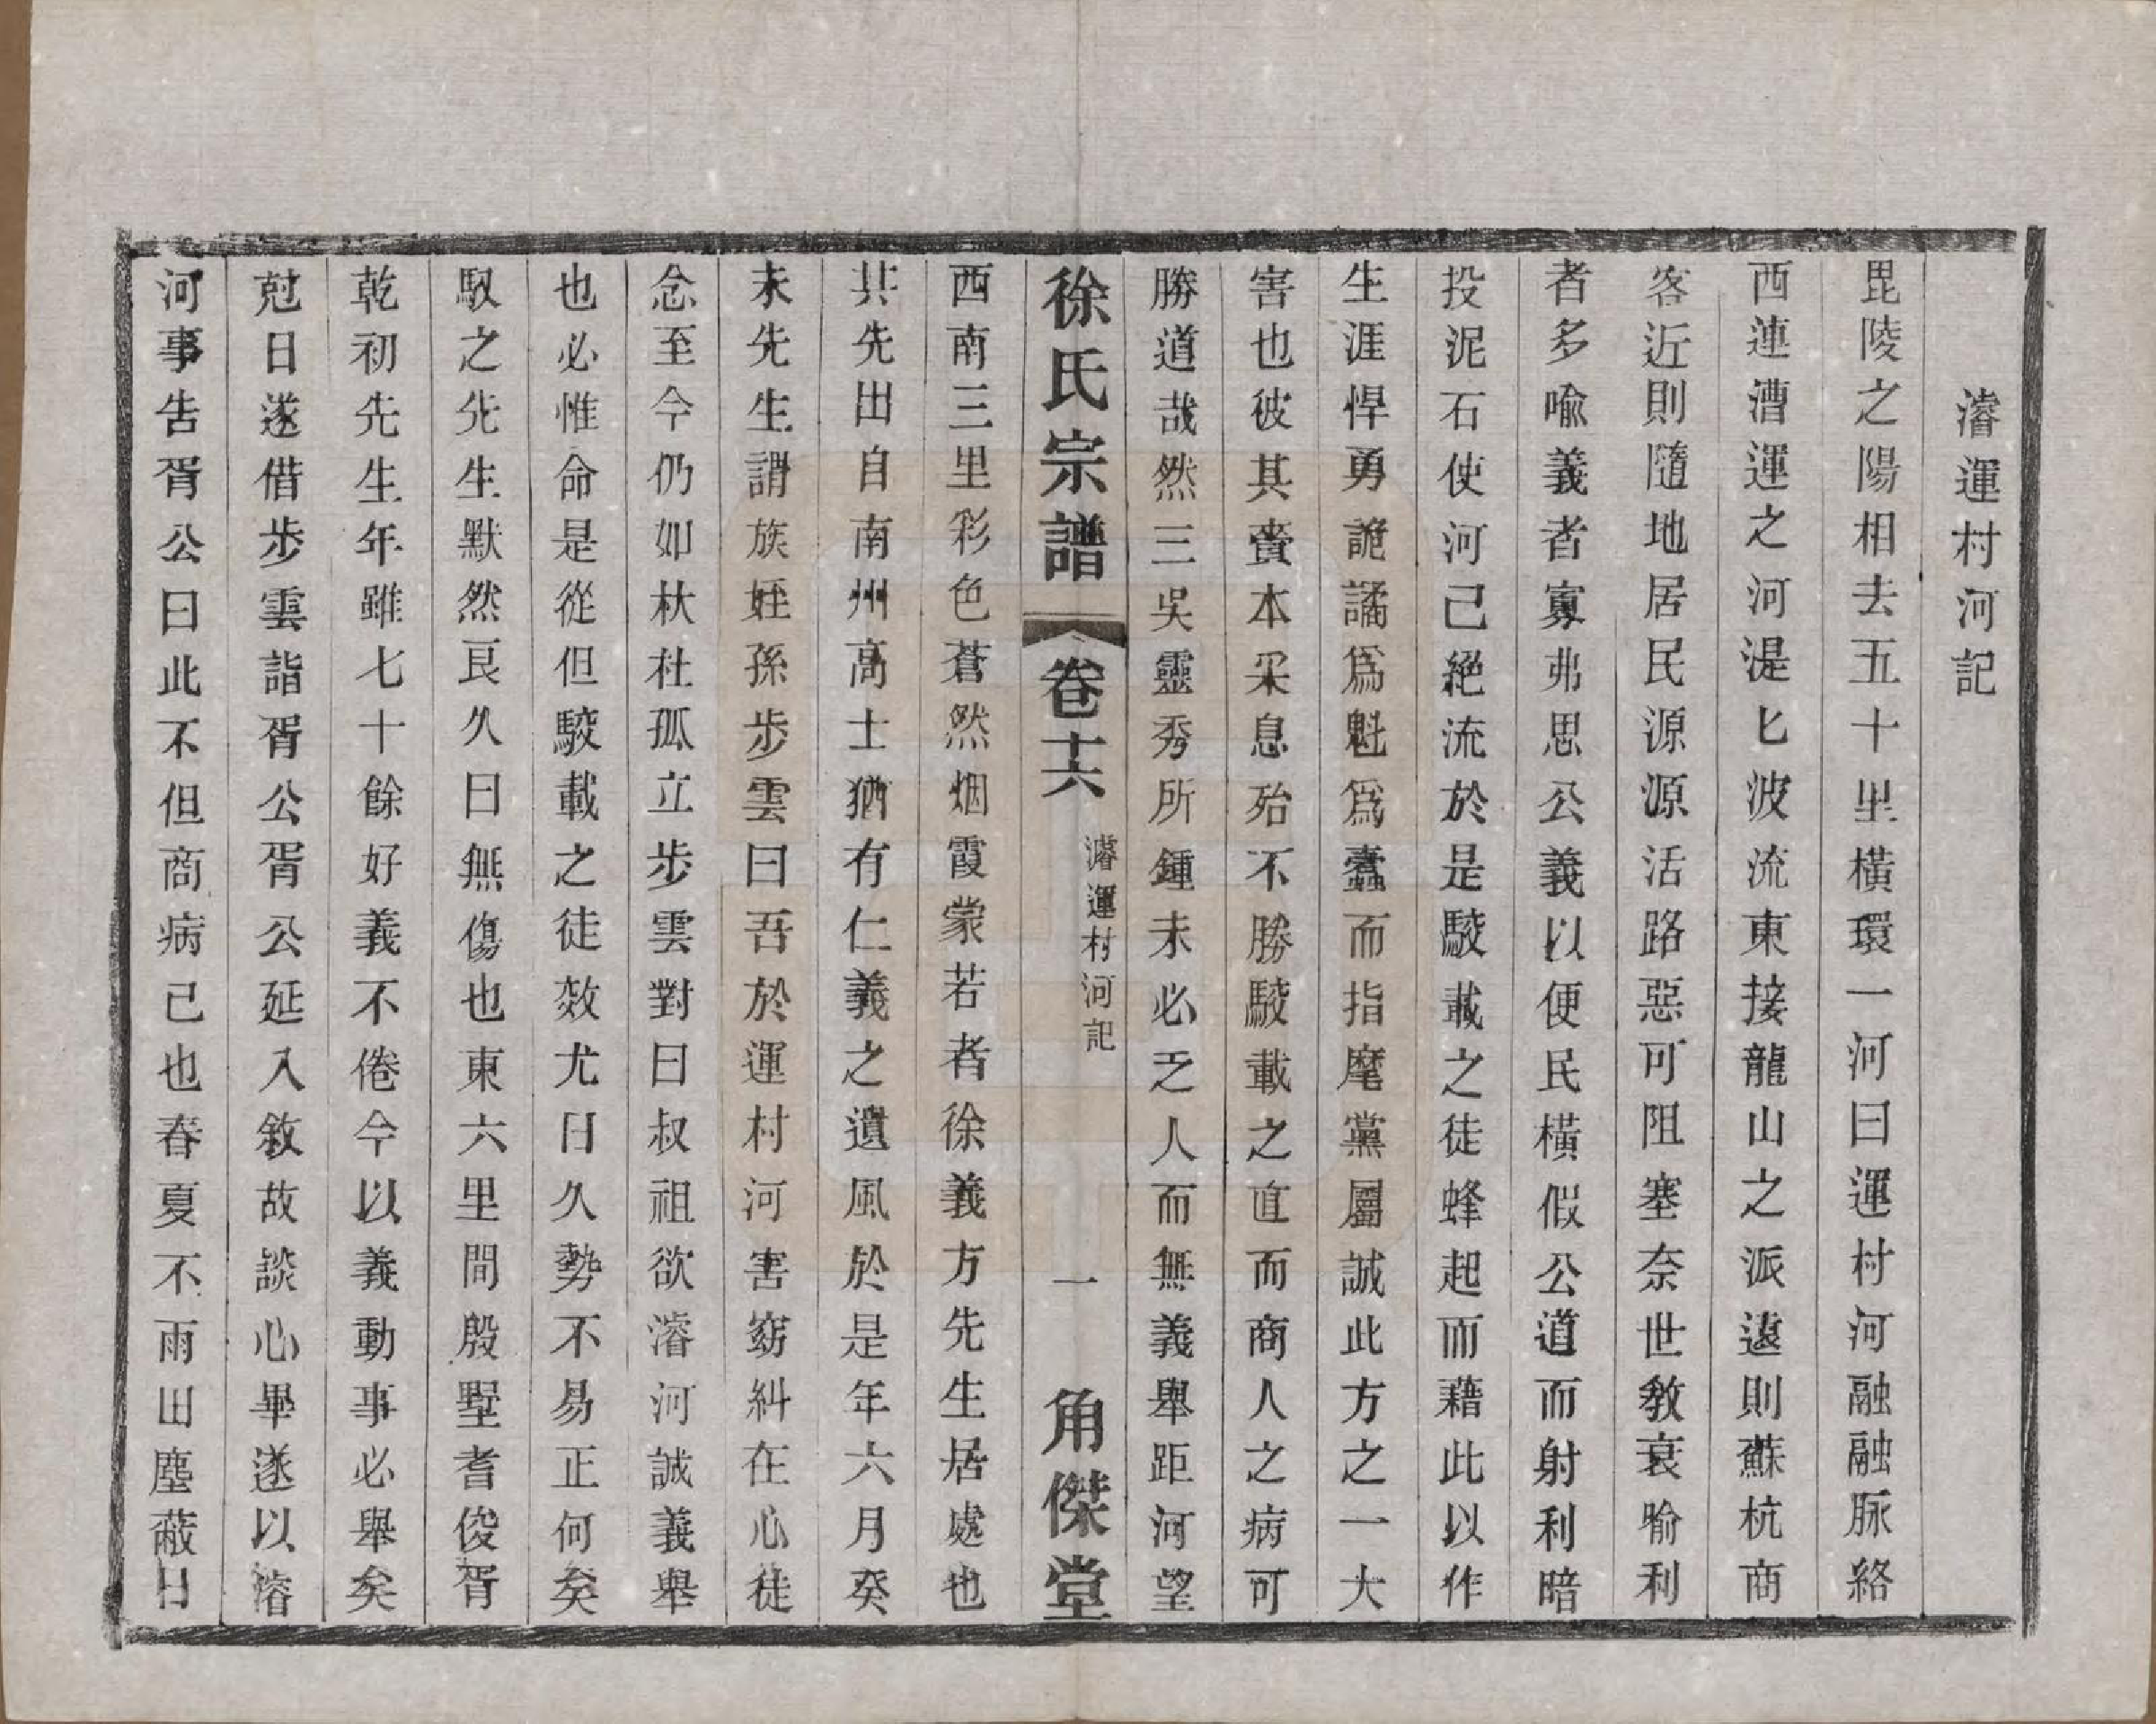 濬運村河記
毘陵之陽相去五十里橫環一河曰運村河融融脉絡
西連漕運之河湜匕波流東接龍山之派遠則蘇杭商
客近則隨地居民源源活路惡可阻塞奈世敎衰喻利
者多喻義者寡弗思公義以便民橫假公道而射利暗
投泥石使河己絕流於是駁載之徒蜂起而藉此以作
生涯悍勇詭譎爲魁爲蠹而指麾黨屬誠此方之一大
害也彼其賫本采息殆不勝駁載之直而商人之病可
勝道哉然三吳靈秀所鍾未必乏人而無義舉距河望
徐氏宗譜 卷十六 濬運村河記 一 角傑堂
西南三里彩色蒼然烟霞蒙若者徐義方先生居處也
其先出自南州高士猶有仁義之遺風於是年六月癸
未先生謂族姪孫步雲曰吾於運村河害窈糾在心徒
念至今仍如杕杜孤立步雲對曰叔祖欲濬河誠義舉
也必惟命是從但駁載之徒效尤日久勢不易正何矣
馭之先生默然良久曰無傷也東六里間殷墅耆俊胥
乾初先生年雖七十餘好義不倦今以義動事必舉矣
尅日遂借步雲詣胥公胥公延入敘故談心畢遂以濬
河事告胥公曰此不但商病己也春夏不雨田塵蔽日